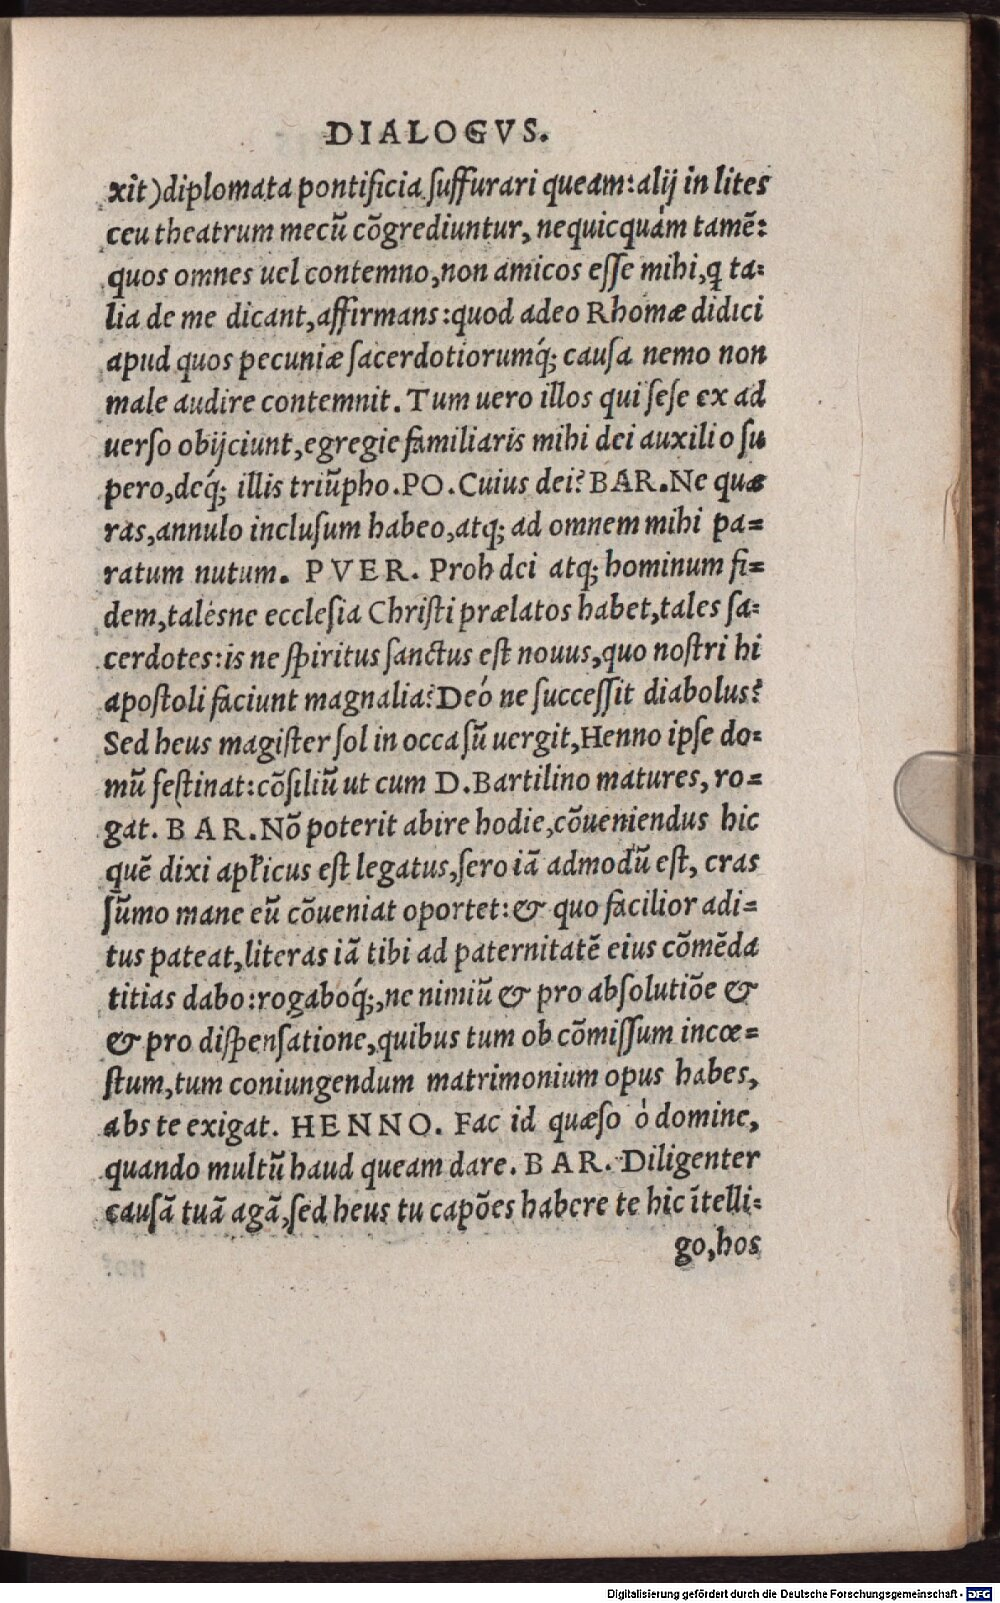 DIALOGVS.
xit) diplomata pontificia suffurari queam: alij in lites
ceu theatrum mecū cōgrediuntur, nequicquám tamē:
quos omnes uel contemno, non amicos esse mihi, ꝗ ta=
lia de me dicant, affirmans: quod adeo Rhomæ didici
apud quos pecuniæ sacerdotiorumq́; causa nemo non
male audire contemnit. Tum uero illos qui sese ex ad
uerso obijciunt, egregie familiaris mihi dei auxilio su
pero, deq́; illis triūpho. PO. Cuius dei? BAR. Ne quæ
ras, annulo inclusum habeo, atq; ad omnem mihi pa=
ratum nutum. PVER. Proh dei atq; hominum fi=
dem, talésne ecclesia Christi prælatos habet, tales sa=
cerdotes: is ne spiritus sanctus est nouus, quo nostri hi
apostoli faciunt magnalia? Deó ne successit diabolus?
Sed heus magister sol in occasū uergit, Henno ipse do=
mū festinat: cōsiliū ut cum D. Bartilino matures, ro=
gat. BAR. Nō poterit abire hodie, cōueniendus hic
quē dixi apƚicus est legatus, sero iā admodū est, cras
sūmo mane eū cōueniat oportet: & quo facilior adi=
tus pateat, literas iā tibi ad paternitatē eius cōmēda
titias dabo: rogaboq́;, ne nimiū & pro absolutiōe &
& pro dispensatione, quibus tum ob cōmissum incœ=
stum, tum coniungendum matrimonium opus habes,
abs te exigat. HENNO. Fac id quæso ò domine,
quando multū haud queam dare. BAR. Diligenter
causā tuā agā, sed heus tu capōes habere te hic ītelli=
go, hos
Digitalisierung gefördert durch die Deutsche Forschungsgemeinschaft - DFG